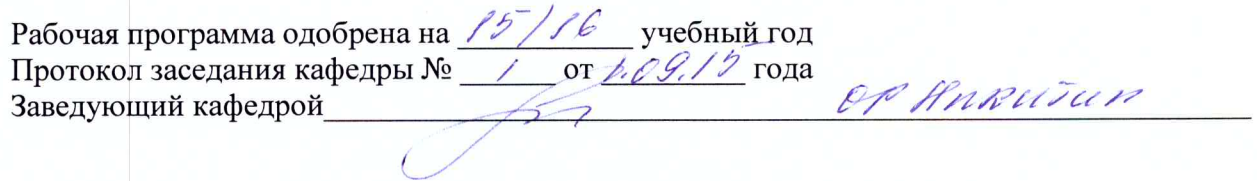 Рабочая программа одобрена на 15/16 учебный год
Протокол заседания кафедры № 1 от 1.09.15 года
Заведующий кафедрой ОР Никитин